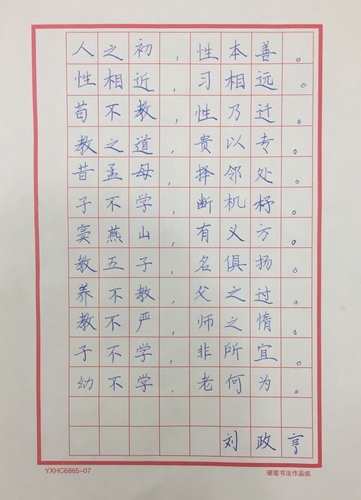 人之初，性本善。
性相近，习相远。
苟不教，性乃迁。
教之道，贵以专。
昔孟母，择邻处。
子不学，断机杼。
窦燕山，有义方。
教五子，名俱扬。
养不教，父之过。
教不严，师之惰。
子不学，非所宜。
幼不学，老何为。
刘政亨
YXHC6865-07 硬笔书法作品纸